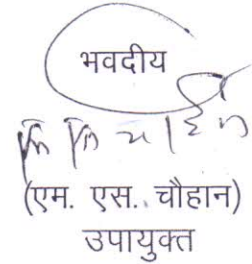 भवदीय
(एम. एस. चौहान)
उपायुक्त